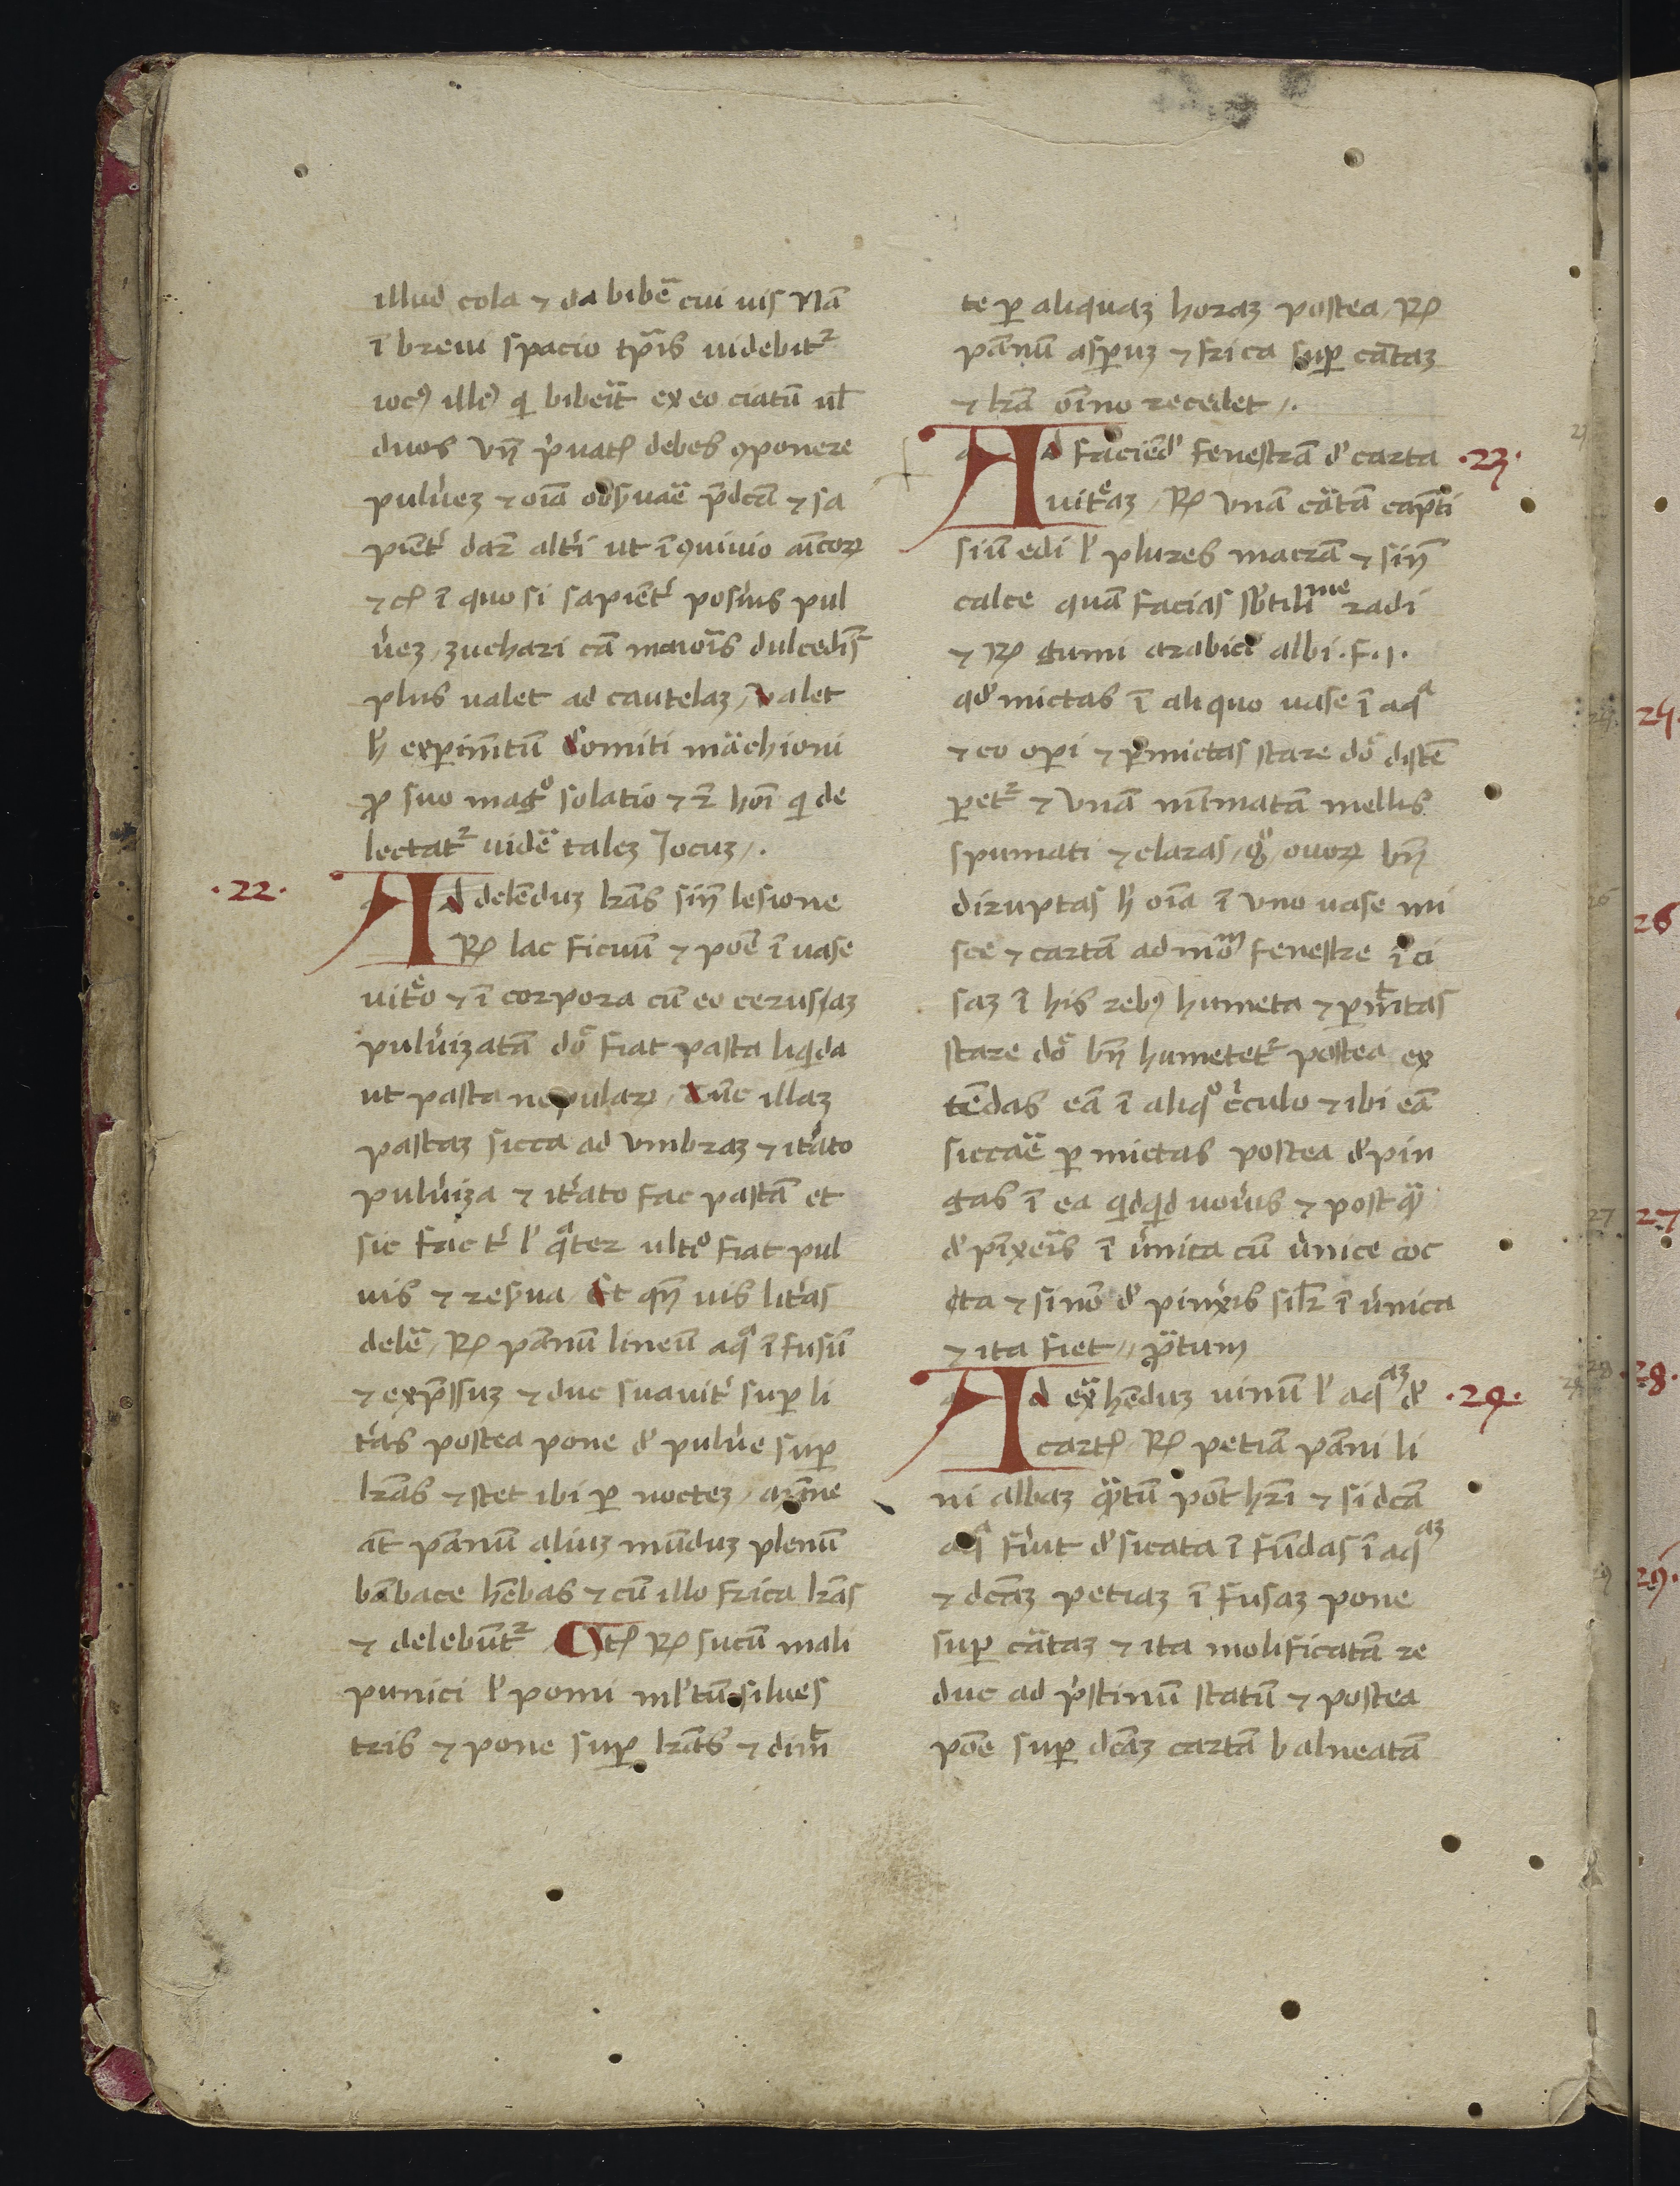 illud cola ⁊ da bibē cui uis Nā
ī breui spacio tp̄is uidebit᷑
iocꝰ illeꝰ q bibeīt ex eo ciatū ul̄
duos Vn̄ p̄uatꝭ debes ꝯponere
puluez ⁊ oīa obsʼuāē p̄dcā ⁊ sa
piēt᷑ dar̄ alt᷑i ut ī ꝯuiuio aīcoꝝ
⁊cꝭ ī quo si sapiēt᷑ posʼuis pul
uez zuchari cā maioīs dulcedīs
plus ualet ad cautelaz, Valet
h̄ exꝑimtū Comiti māchioni
ꝓ suo magº solatio ⁊ r̄ hoī q de
lectat᷑ uidē talez Jocuz.
.22.
Ad delēduz lr̄as sīn lesione
℞ lac ficuū ⁊ poē ī uase
uitº ⁊ ī corpora cū eo cerussaz
puluʼizatā dō fiat pasta liqida
ut pasta nepulaꝝ, tūc illaz
pastaz sicca ad Vmbraz ⁊ it᷑ato
puluʼiza ⁊ it᷑ato fac pastā et
sic fac t᷑ lʼ qᵃter ultº fiat pul
uis ⁊ resʼua Et qn̄ uis lit᷑as
delē, ℞ pānū lineū aqᵃ īfusū
⁊ exp̄ssuz ⁊ duc suauit᷑ suꝑ li
t᷑as postea pone dʼ puluʼe suꝑ
lr̄as ⁊ stet ibi ꝑ noctez, 
āt pānū aliuz mūduz plenū
bābace hēbas ⁊ cū illo frica lr̄as
⁊ delebūt᷑, Itꝭ ℞ sucū mali
punici lʼ pomi mlʼtū silues
tris ⁊ pone suꝑ lr̄as ⁊ dim̄
te ꝑ aliquaz horaz postea, ℞
pānū asꝑuz ⁊ frica suꝑ cartaz
⁊ lr̄ā oīno recedet.
Ad faciēdʼ fenestrā dʼ carta
.23.
uit᷑az, ℞ Vnā cātā cap̄ti
siuī edi lʼ plures macrā ⁊ sīn
calce quā facias sb̄tiliᵐᵉ radi
⁊ ℞ gumi arabici albi .F.j.
qdʼ mictas ī aliquo uase ī aqᵃ
⁊ eo oꝑi ⁊ ꝑmictas stare dō distē
ꝑet᷑ ⁊ Vnā mīmatā mellis
spumati ⁊ claras, gº, ouoꝝ bn̄
diruptas h̄ oīa ī Vno uase mi
sce ⁊ cartā ad moᵐ fenestre īci
saz ī his rebꝰ humeta ⁊ ꝑm̄tas
stare dō bn̄ humetet᷑ postea ex
tēdas eā ī aliqº cʼculo ⁊ ibi eā
siccāē ꝑmictas postea dʼpin
gas ī ea qdqd uoluʼis ⁊ postqᵃ
dʼpīxeīs ī uʼnica cū uʼnice coc
cta ⁊ si nō dʼpinxʼis silʼr ī uʼnica
⁊ ita fiet,, ꝓbatum
Ad exᵃhēduz uinū lʼ aqᵃᶻ dʼ
.24.
cartꝭ ℞ petiā pāni li
ni albaz qᵃtū pōt hr̄i ⁊ si dcā
aqᵃ fuʼit dʼsicata īfūdas ī aqᵃᶻ
⁊ dcāz petiaz īfusaz pone
suꝑ cātaz ⁊ ita molificatā re
duc ad pʼstinū statū ⁊ postea
poē suꝑ dcāz cartā balneatā
24.
26
27
28.
29.